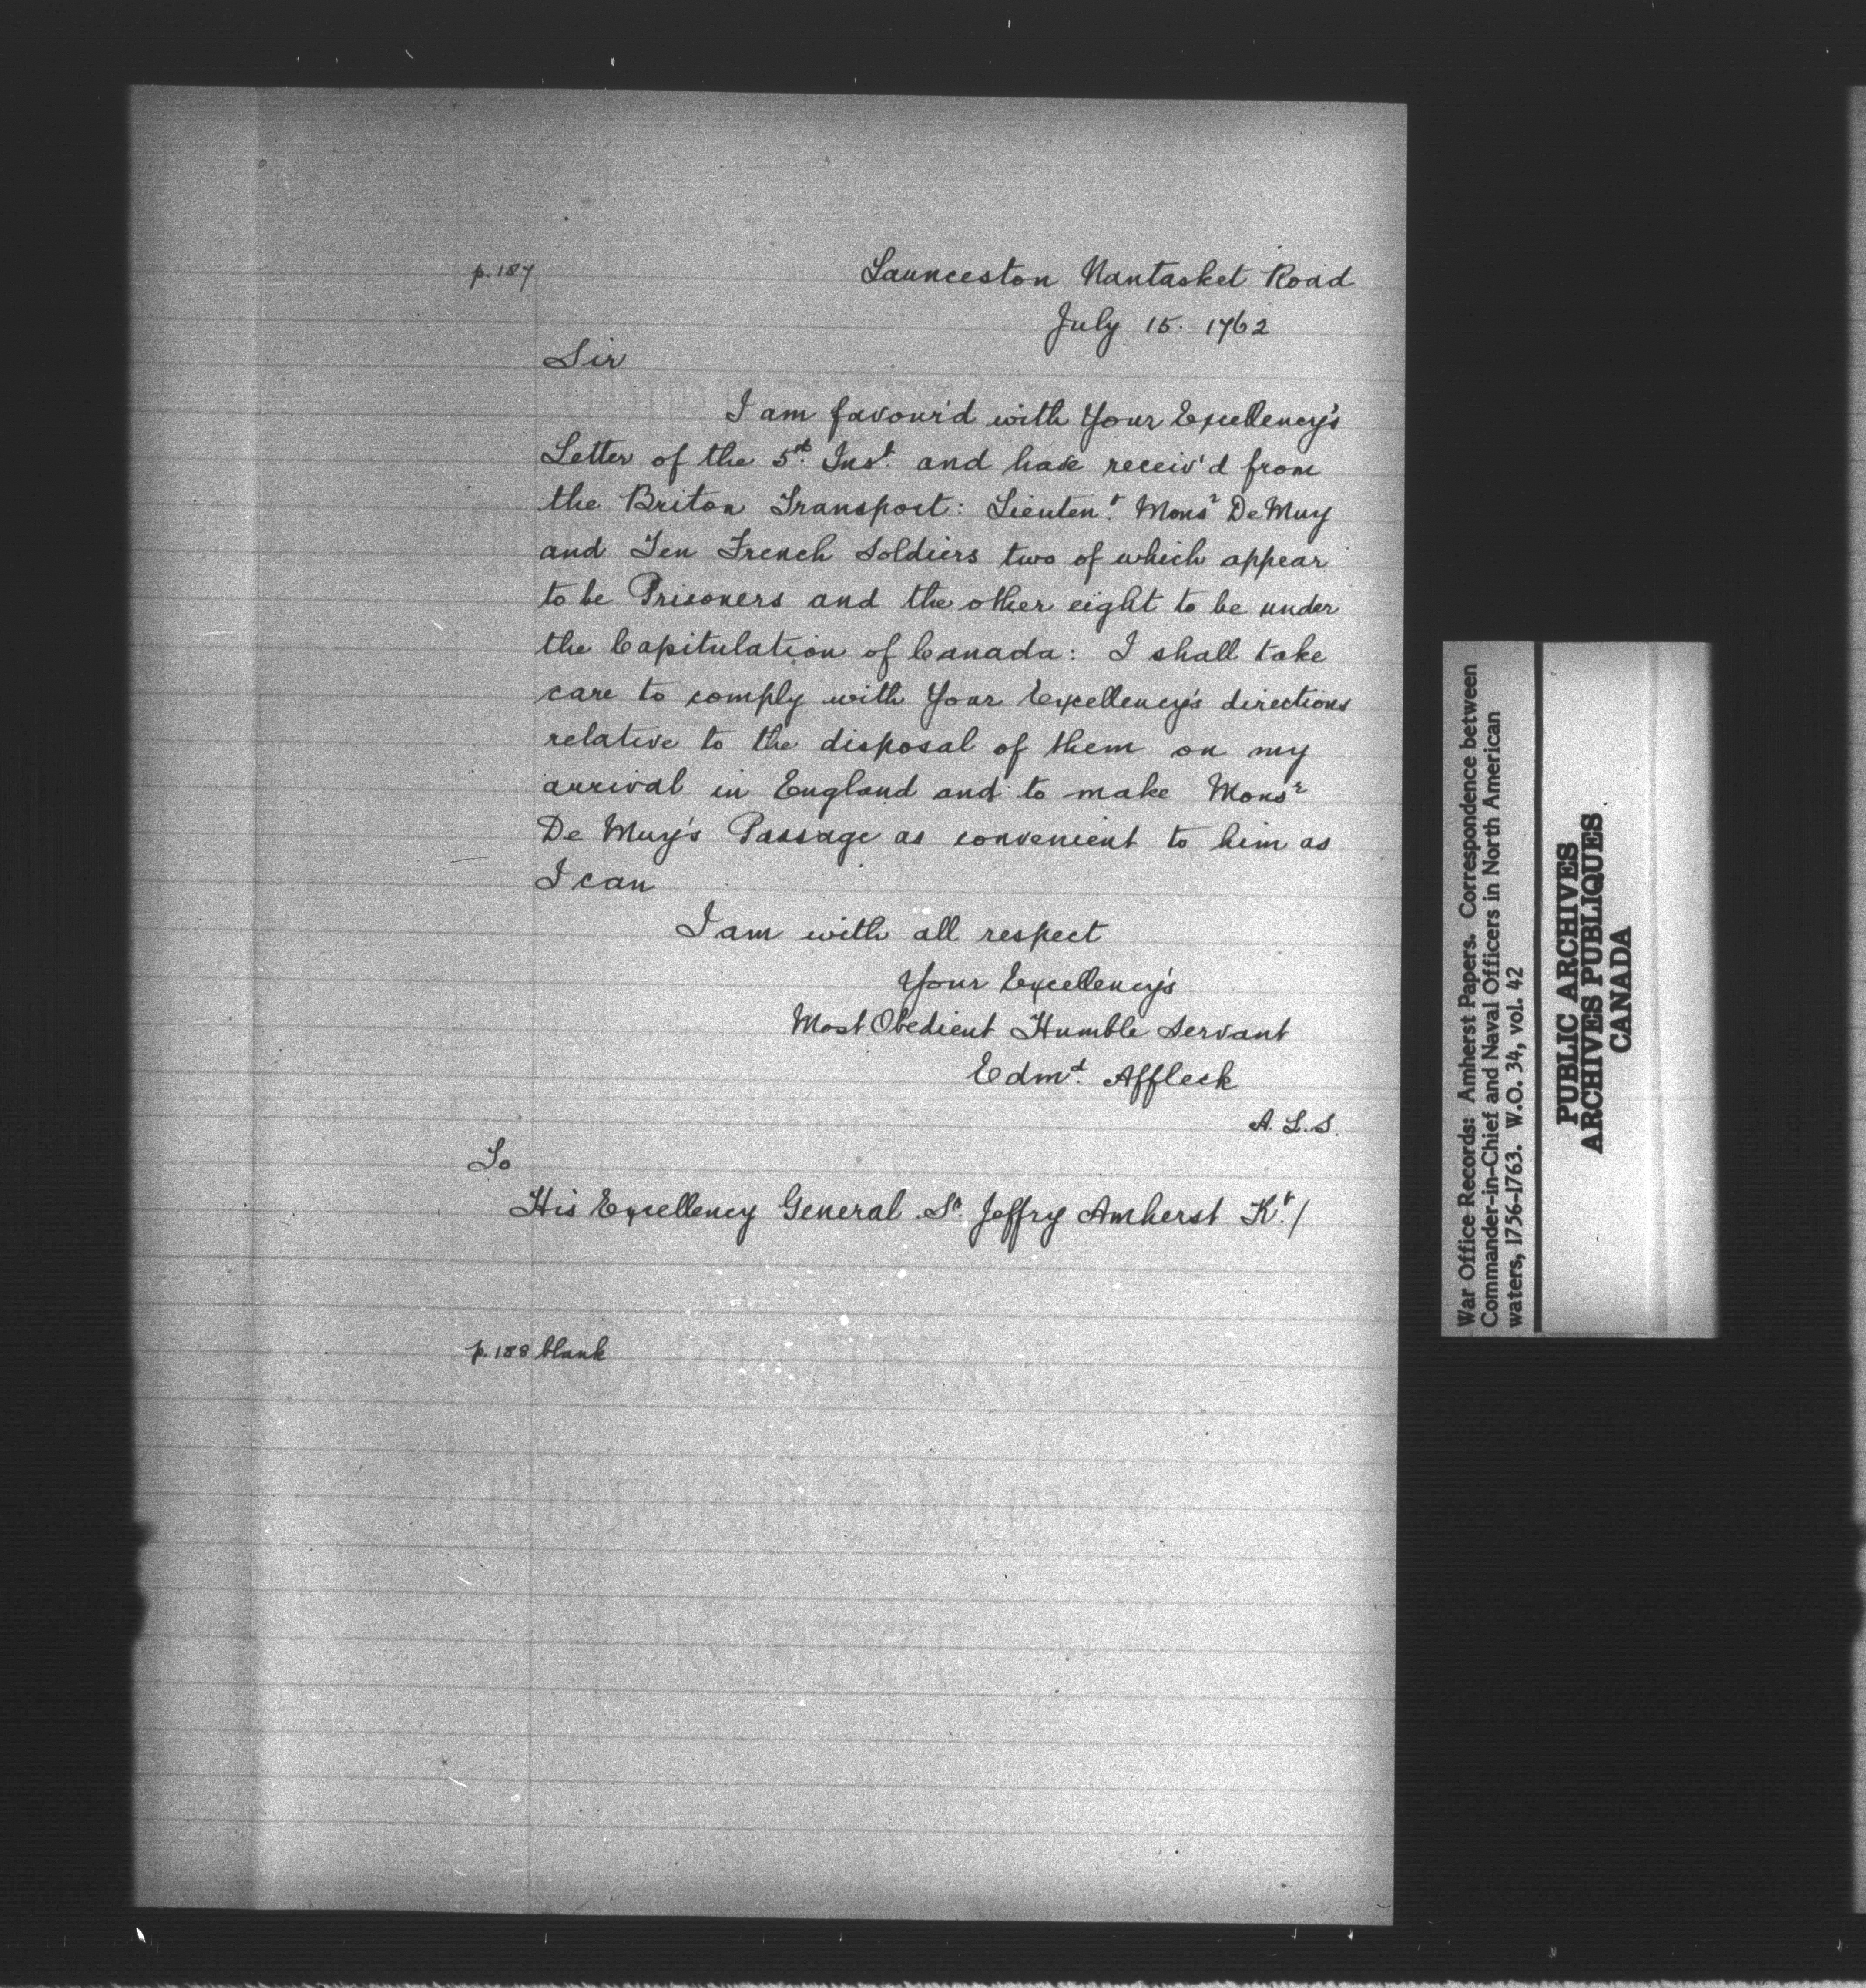 p. 187
Launceston Nantasket Road
July 15. 1762
Sir
I am favour'd with Your Excellency's
Letter of the 5th. Inst. and have receiv'd from
the Briton Transport: Lieutent. Monsr De Muy
and Ten French Soldiers two of which appear
to be Prisoners and the other eight to be under
the Capitulation of Canada: I shall take
care to comply with Your Excellency's directions
relative to the disposal of them on my
arrival in England and to make Monsr
De Muy's Passage as convenient to him as
I can
I am with all respect
Your Excellency's
Most Obedient Humble Servant
Edmd. Affleck
A. L. S.
To
His Excellency General Sr. Jeffry Amherst Kt. /
p. 188 blank
War Office Records: Amherst Papers. Correspondence between
Commander-in-Chief and Naval Officers in North American
waters, 1756-1763. W.O. 34, vol. 42
PUBLIC ARCHIVES
ARCHIVES PUBLIQUES
CANADA